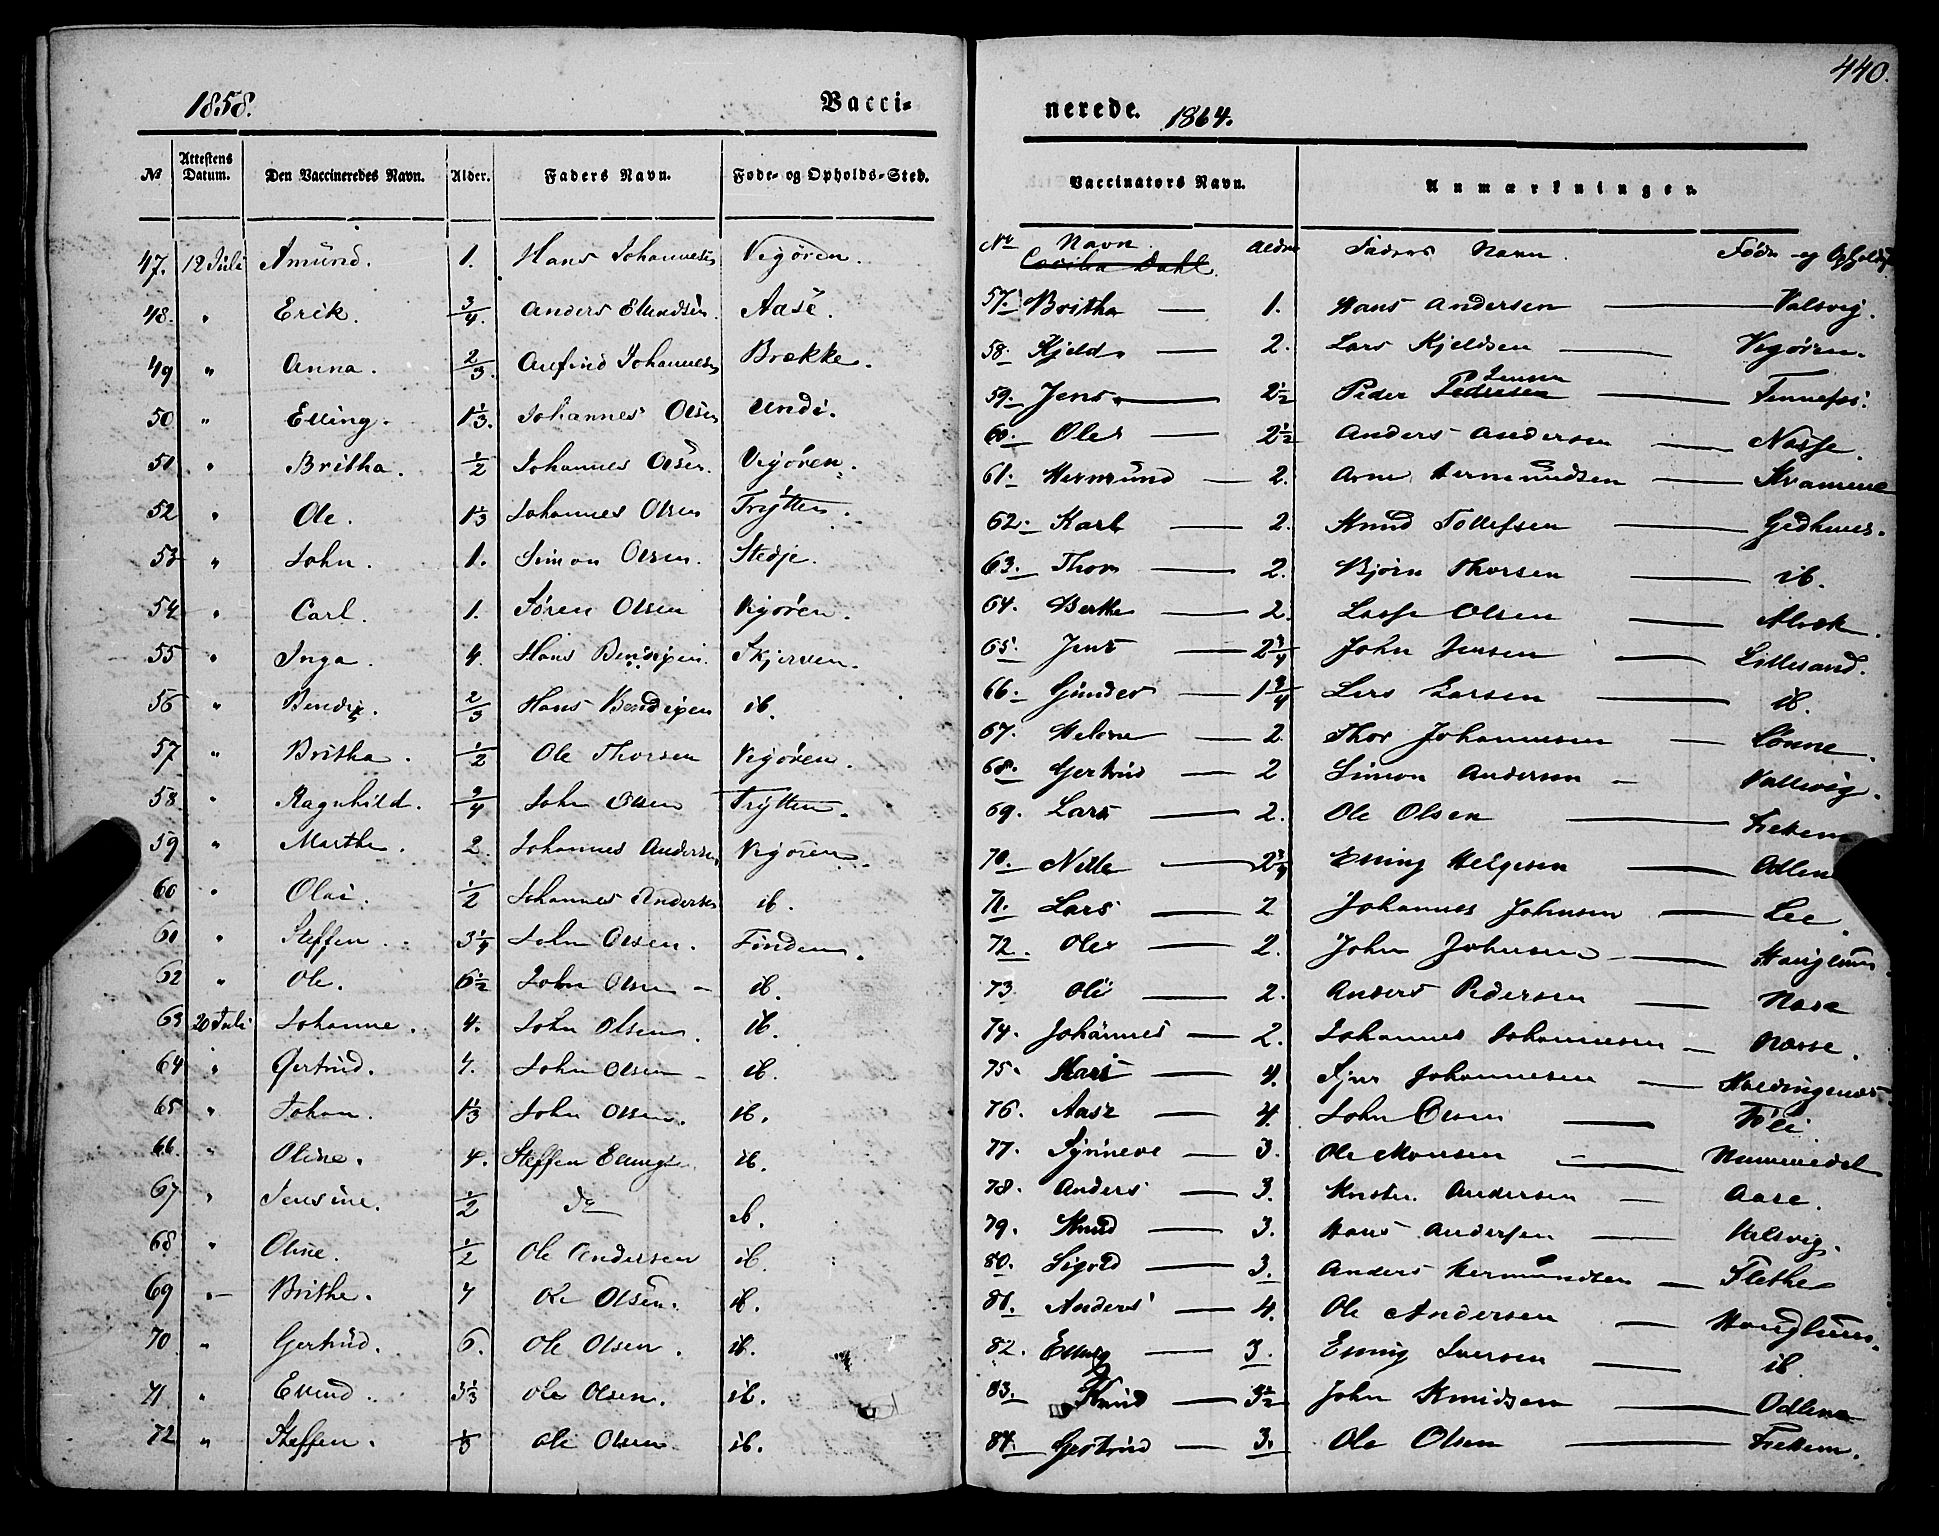 1858. Vacci-
№ Attestens Datum. Den Vaccineredes Navn. Alder. Faders Navn. Føde- og Opholds-Sted.
47. 12 Juli Amund. 1. Hans Johannesen Vigøren.
48. " Erik. 3/4. Anders Ellendsen. Aase.
49 " Anna. 2/3. Johannesen Brække.
50 " Elling. 1 1/3. Johannes Olsen Undi.
51 " Britha. 1/2 Johannes Olsen. Vigøren.
52 " Ole. 1 1/3 Johannes Olsen Trÿtten.
53 " John. 1. Simon Olsen. Stedje.
54 " Carl. 1. Søren Olsen Vigøren.
55 " Inga. 4. Hans Bendixen. Skjerven.
56 " Bendix. 2/3 Hans Bendixen ib.
57 " Britha. 1/2 Ole Thorsen Vigøren.
58 " Ragnhild. 3/4 John Olsen Trÿtten.
59 " Marthe. 2. Johannes Andersen Vigøren.
60 " Olai. 1/2 Johannes Andersen ib.
61 " Steffen. 3 1/4 John Olsen. Finden.
62 " Ole. 6 1/2 John Olsen – ib.
63 20 Juli Johanne. 4. John Olsen. ib.
64 " Gertrud. 7. John Olsen – ib.
65 " Johan. 1 1/3 John Olsen. ib.
66 " Oline. 4. Steffen Ellingsen ib.
67 " Jensine. 1/2 do ib.
68 " Oline. 1/2 Ole Andersen ib.
69 " Brithe. 7 Ole Olsen. ib.
70 " Gertrud. 6. Ole Olsen. ib.
71 " Evind. 3 1/3 Ole Olsen. ib.
72 " Steffen. Ole Olsen. ib.
440.
nerede. 1864.
Vaccinators Navn. Anmærkninger.
№ Navn. Alder Faders Navn. Føde- og Opholds
Cecilia Dahl.
57. Britha — 1. Hans Andersen — Valsvig.
58. Kjeld. — 2. Lars Kjeldsen — Vigøren.
59. Jens. — 2 1/2 Peder Pedersen Jensen — Tennefos.
60. Ole — 2 1/2 Anders Andersen — Nasse.
61. Hermund — 2. Arne Hermundsen — Kvamme
62. Karl — 2. Knud Tollefsen — Gedhus.
63. Thor — 2. Bjørn Thorsen — ib.
64. Berthe — 2. Lasse Olsen — Alræk.
65. Jens — 2 3/4 John Jensen — Lillesand.
66. Gunder — 1 3/4 Lars Larsen — ib.
67. Helene — 2. Thor Johannesen — Lønne.
68. Gertrud — 2 Simon Andersen — Vallevig.
69. Lars — 2. Ole Olsen — Frettem
70. Nille — 2 3/4 Elling Helgesen — Odlen
71. Lars — 2 Johannes Johnsen — Lee.
72. Ole — 2. John Johnsen — Hauglum.
73. Ole — 2. Anders Pedersen — Nase
74. Johannes — 2. Johannes Johannesen — Nasse.
75. Kari — 4. Sjur Johannesen —
76. Aase — 4. John Olsen — Føli
77. Synneve — 3. Ole Monsen — Nummedal
78. Anders — 3. Andersen — Aase.
79. Knud — 3. Hans Andersen — Valsvig.
80. Sigvld — 3. Anders Hermundsen — Flethe
81. Anders — 4. Ole Andersen — Hauglum.
82. Elling — 3. Elling Iversen — ib.
83. Knud — 3 1/2 John Knudsen — Odlen
84. Gertrud — 3. Ole Olsen — Frettem.